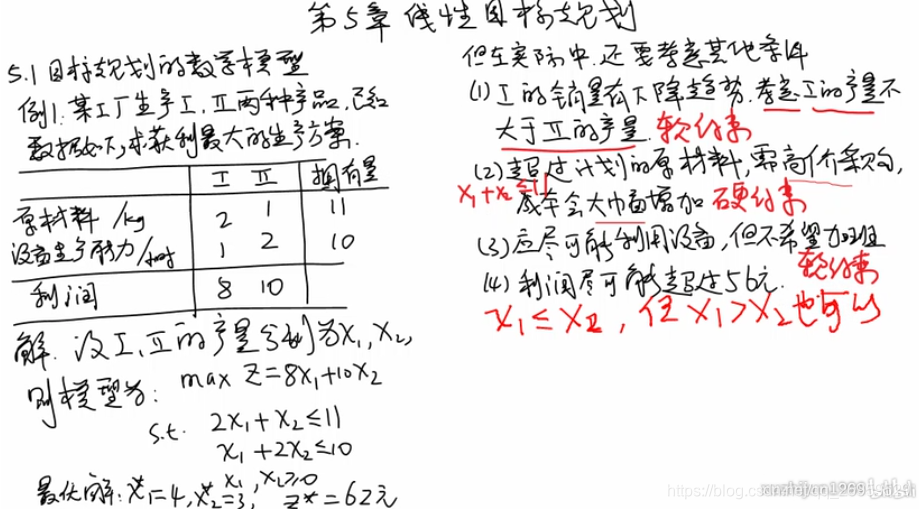 第5章 线性目标规划
5.1 目标规划的数学模型
例1. 某工厂生产Ⅰ,Ⅱ两种产品,已知
数据如下,求获利最大的生产方案.
Ⅰ Ⅱ 拥有量
原材料/kg 2 1 11
设备生产能力/小时 1 2 10
利润 8 10
解. 设Ⅰ,Ⅱ的产量分别为x₁,x₂,
则模型为: max Z=8x₁+10x₂
s.t. 2x₁+x₂≤11
x₁+2x₂≤10
x₁,x₂≥0
最优解: x₁*=4, x₂*=3, z*=62元
但在实际中,还要考虑其他条件
(1) Ⅰ的销量有下降趋势.考虑Ⅰ的产量不
大于Ⅱ的产量. 软约束
(2) 超过计划的原材料,需高价采购,
x₁+x₂≤11
成本会大幅增加 硬约束
(3) 应尽可能利用设备,但不希望加班
软约束
(4) 利润尽可能超过56元.
x₁≤x₂,但x₁>x₂也可以
https://blog.csdn.net/